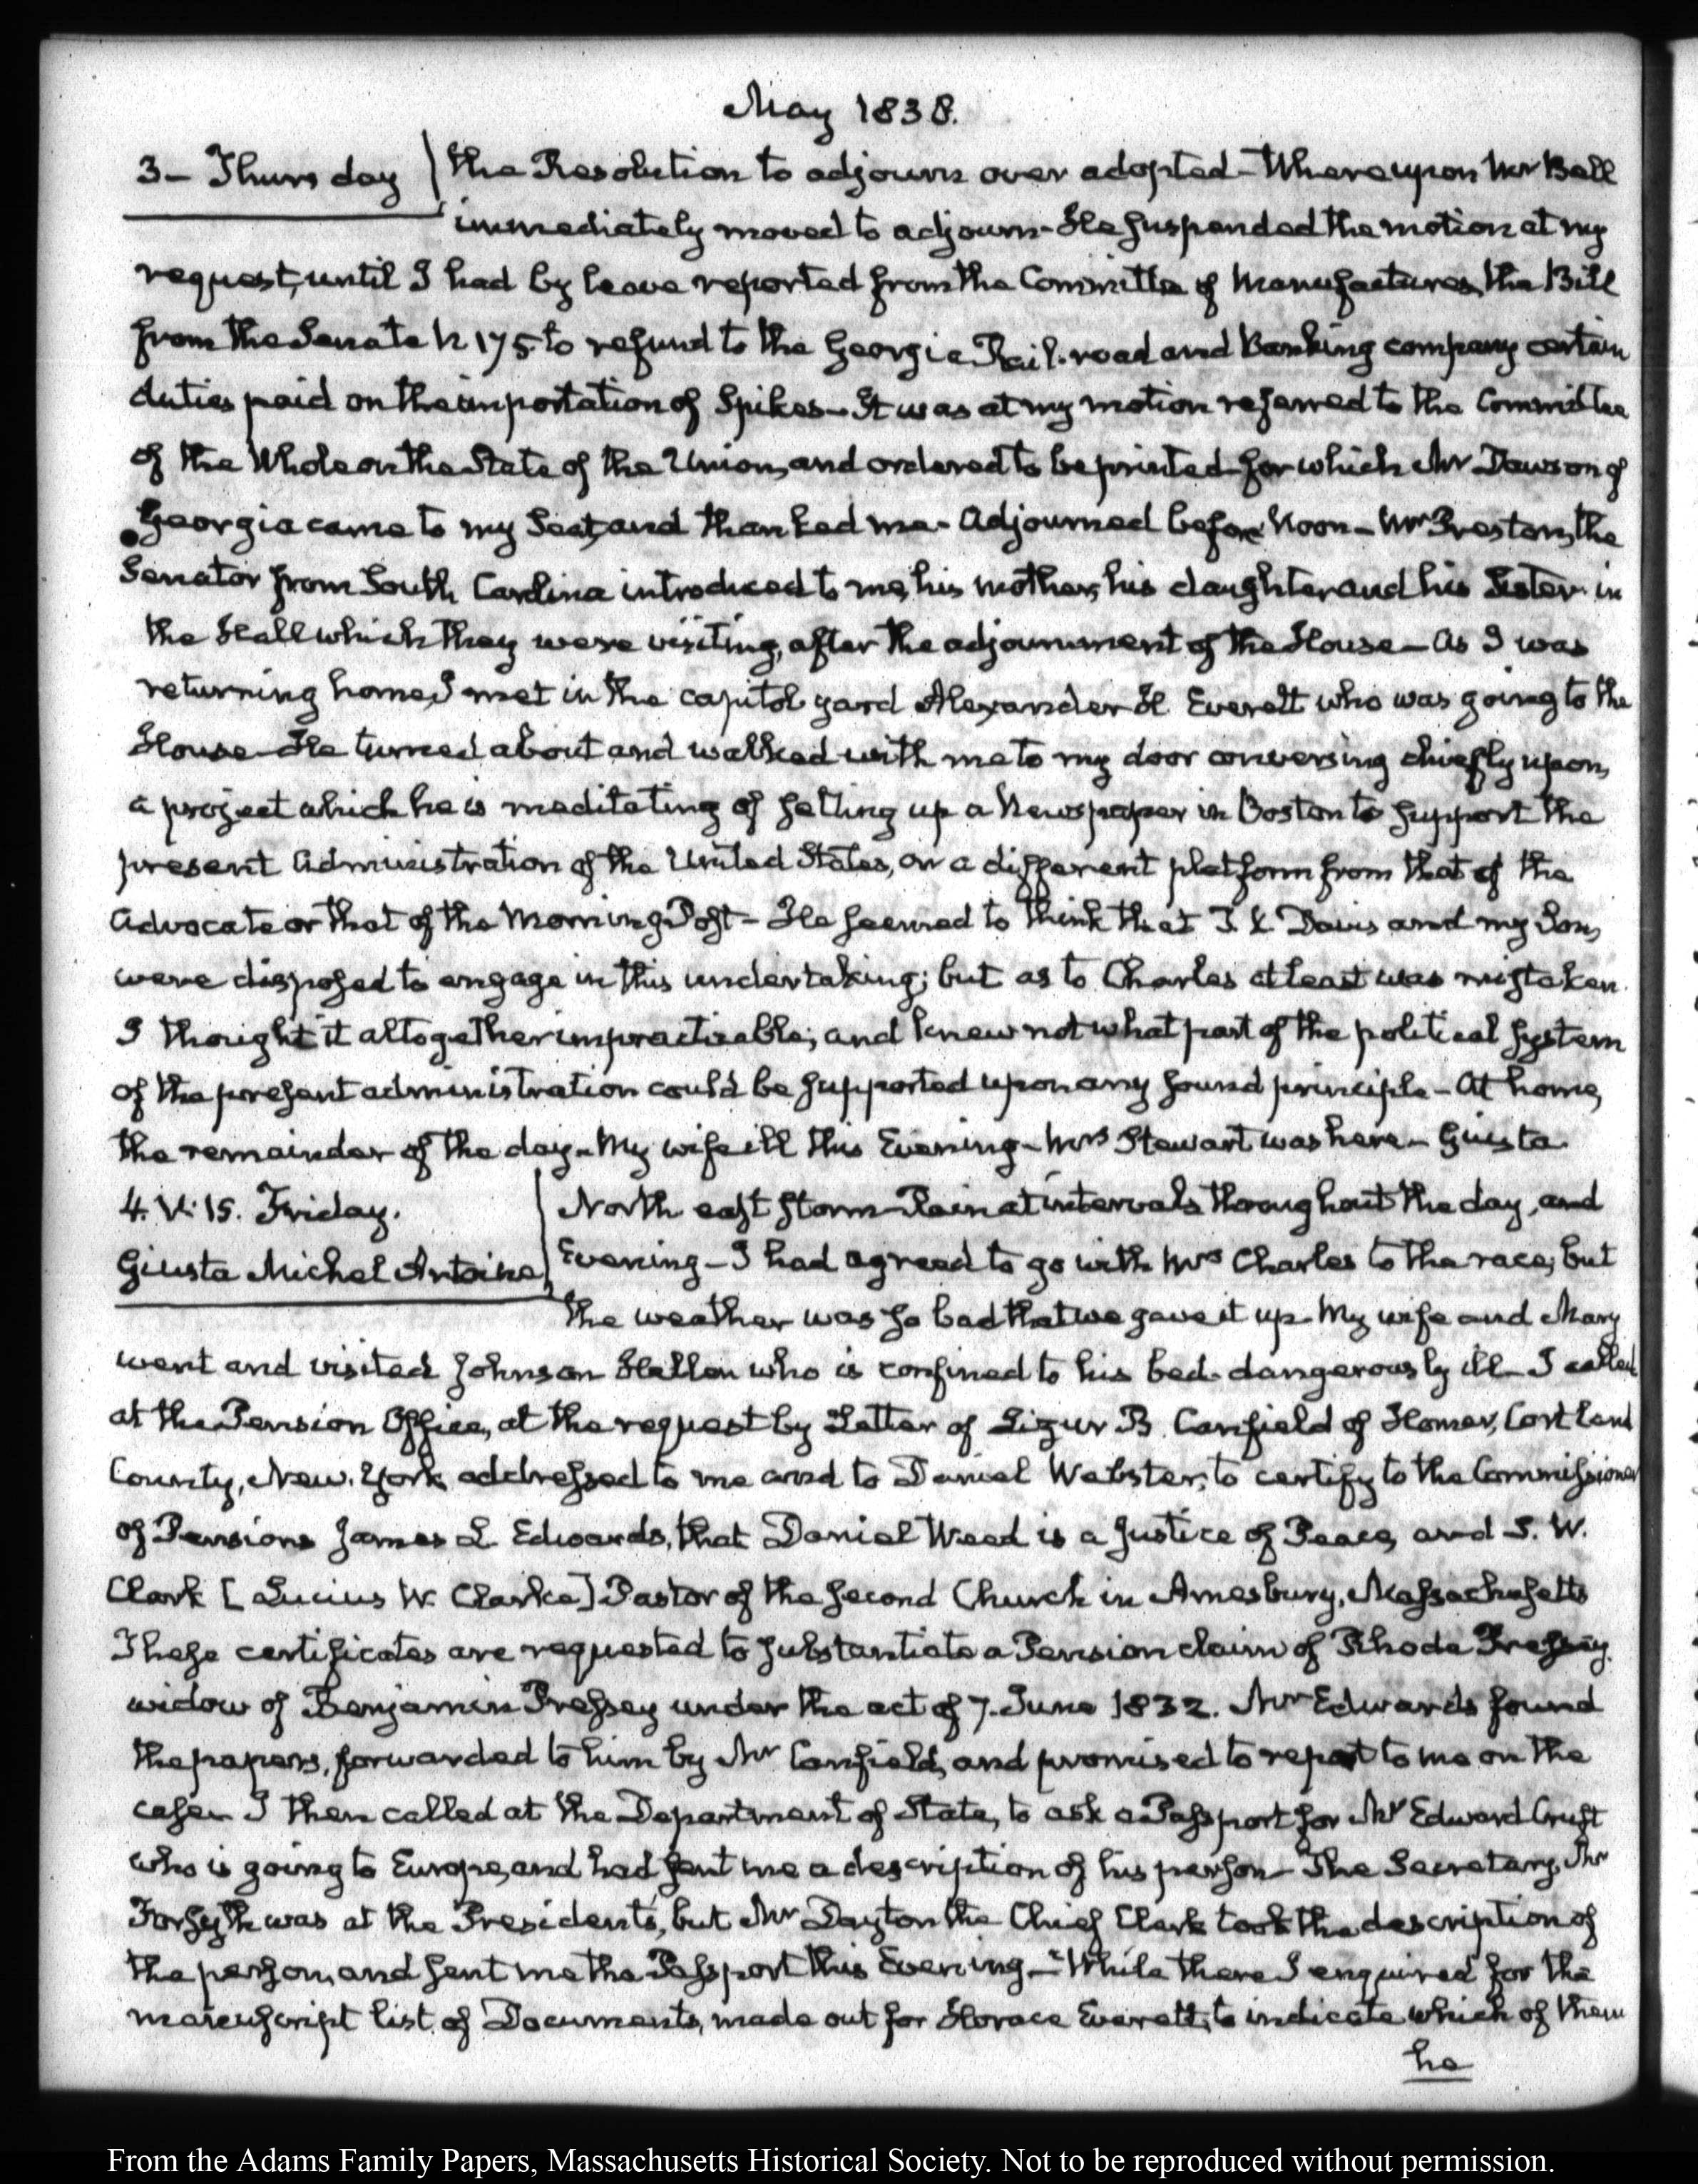 May 1838.
3 – Thursday
the Resolution to adjourn over adopted – Whereupon Mr Bell
immediately moved to adjourn – He suspended the motion at my
request, until I had by leave reported from the Committee of Manufactures, the Bill
from the Senate N 175 to refund to the Georgia Rail-road and Banking company certain
duties paid on the importation of Spikes – It was at my motion referred to the Committee
of the Whole on the State of the Union, and ordered to be printed for which Mr Dawson of
Georgia came to my Seat, and thanked me – Adjourned before Noon – Mr Preston, the
Senator from South Carolina introduced to me, his mother, his daughter and his Sister in
the Hall which they were visiting, after the adjournment of the House – As I was
returning home, I met in the Capitol yard Alexander H. Everett who was going to the
House – He turned about and walked with me to my door conversing chiefly upon,
a project which he is meditating of setting up a Newspaper in Boston to support the
present Administration of the United States, on a different platform from that of the
Advocate or that of the Morning Post – He seemed to think that I. P. Davis and my Son,
were disposed to engage in this undertaking; but as to Charles at least was mistaken.
I thought it altogether impracticable; and knew not what part of the political system
of the present administration could be supported upon any sound principle – At home,
the remainder of the day – My wife ill this Evening – Mrs Stewart was here – Giusta
4. V: 15. Friday.
Giusta Michel Antoine
North east storm – Rain at intervals throughout the day, and
Evening – I had agreed to go with Mrs Charles to the race, but
the weather was so bad that we gave it up – My wife and Mary
went and visited Johnson Hellen who is confined to his bed – dangerously ill – I called
at the Pension Office, at the request by Letter of B. Canfield of Homer, Cortland
County, New-York addressed to me and to Daniel Webster, to certify to the Commissioner
of Pensions James L Edwards, that Daniel Weed is a Justice of Peace, and S. W.
Clark [Lucius W. Clarke] Pastor of the second Church in Amesbury, Massachusetts
These certificates are requested to substantiate a Pension claim of Rhoda Pressey
widow of Benjamin Pressey under the act of 7. June 1832. Mr Edwards found
the papers, forwarded to him by Mr Canfield, and promised to report to me on the
case – I then called at the Department of State, to ask a Passport for Mr Edward Cruft
who is going to Europe, and had sent me a description of his person – The Secretary, Mr
Forsyth was at the President's, but Mr Dayton the Chief Clerk took the description of
the person, and sent me the Passport this Evening – While there I enquired for the
manuscript list of Documents, made out for Horace Everett, to indicate which of them
he
From the Adams Family Papers, Massachusetts Historical Society. Not to be reproduced without permission.